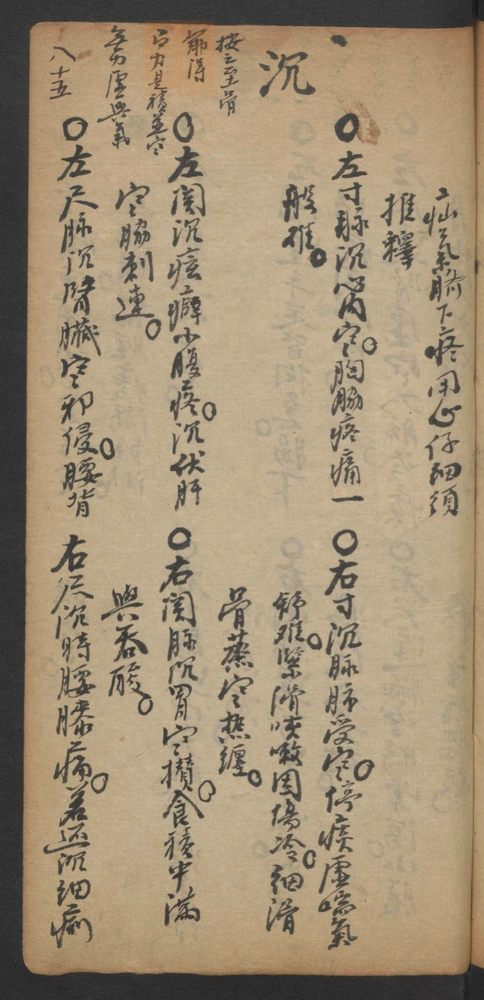 疝氣臍下疼用心仔細須
推詳
沉
按之至骨
筋得
有力是積並寒
無力虛與氣
八十五
○左寸脉沉心內寒。胸脇疼痛一
般難。
○右寸沉脉肺受寒。停痰虛喘氣
舒难。緊滑咳嗽因傷冷。細滑
骨蒸寒熱纏。
○左関沉痰癖小腹疼。沉伏肝
寒脇刺連。
○右関脉沉胃寒攢。食積中滿
與吞酸。
○左尺脉沉腎臟寒邪侵。腰背
右尺沉時腰膝痛。若还沉細痢